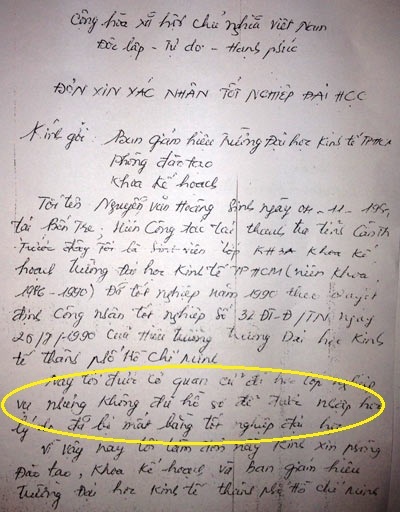 Cộng hòa xã hội chủ nghĩa Việt Nam
Độc lập - Tự do - Hạnh phúc
ĐƠN XIN XÁC NHẬN TỐT NGHIỆP ĐẠI HỌC
Kính gởi: Ban giám hiệu Trường Đại học Kinh tế TPHCM
Phòng đào tạo
Khoa Kế hoạch
Tôi tên: Nguyễn Văn Hoàng Sinh ngày 04-11-195
tại Bến Tre, Hiện Công tác tại thanh tra tỉnh
Trước đây Tôi là Sinh viên lớp KH3A Khoa Kế
hoạch Trường Đại học Kinh tế TPHCM (niên khóa
1986-1990) Đã tốt nghiệp năm 1990 theo quyết
định Công nhận tốt nghiệp số 32 ĐT-Đ/TN ngày
26/7/1990 Của Hiệu trưởng Trường Đại học Kinh
tế thành phố Hồ Chí Minh
Nay tôi được Cơ quan cử đi học lớp nghiệp
vụ nhưng không đủ hồ sơ để được nhập học
lý do đã bị mất bằng tốt nghiệp đại học
Vì vậy nay tôi làm đơn này Kính xin phòng
Đào tạo, Khoa Kế hoạch và ban giám hiệu
Trường Đại học Kinh tế thành phố Hồ Chí Minh